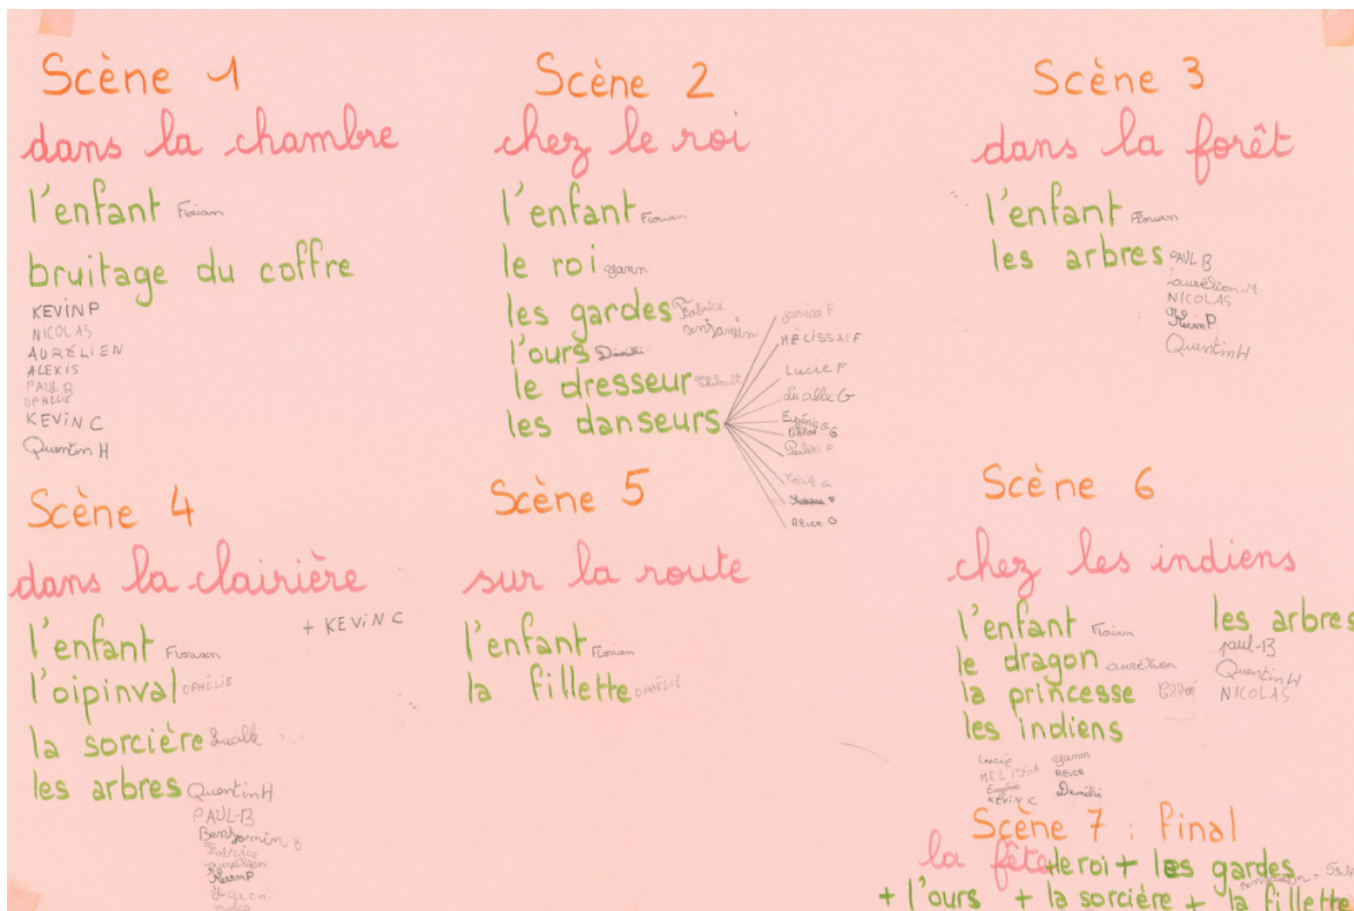 Scène 1
dans la chambre
l'enfant Florian
bruitage du coffre
KEVIN P
NICOLAS
AURÉLIEN
ALEXIS
PAUL B
OPHÉLIE
KEVIN C
Quentin H
Scène 2
chez le roi
l'enfant Florian
le roi yann
les gardes Fabrice
Benjamin
l'ours Dimitri
le dresseur Thibault
les danseurs
Jessica F
MÉLISSA F
Lucie F
Lucille G
Eugénie G
Pauline F
Cécile
Scène 3
dans la forêt
l'enfant Florian
les arbres PAUL B
aurélien M
NICOLAS
Kevin P
Quentin H
Scène 4
dans la clairière
+ KEVIN C
l'enfant Florian
l'oipinval OPHÉLIE
la sorcière Lucille
les arbres Quentin H
PAUL-B
Benjamin D
Fabrice
aurélien
Kevin P
Scène 5
sur la route
l'enfant Florian
la fillette OPHÉLIE
Scène 6
chez les indiens
l'enfant Florian
le dragon aurélien
la princesse
les indiens
Lucie
MELISSA
Eugénie
KEVIN C
yann
Dimitri
les arbres
paul-B
Quentin H
NICOLAS
Scène 7 : final
la fête
+ le roi + les gardes
+ l'ours + la sorcière + la fillette